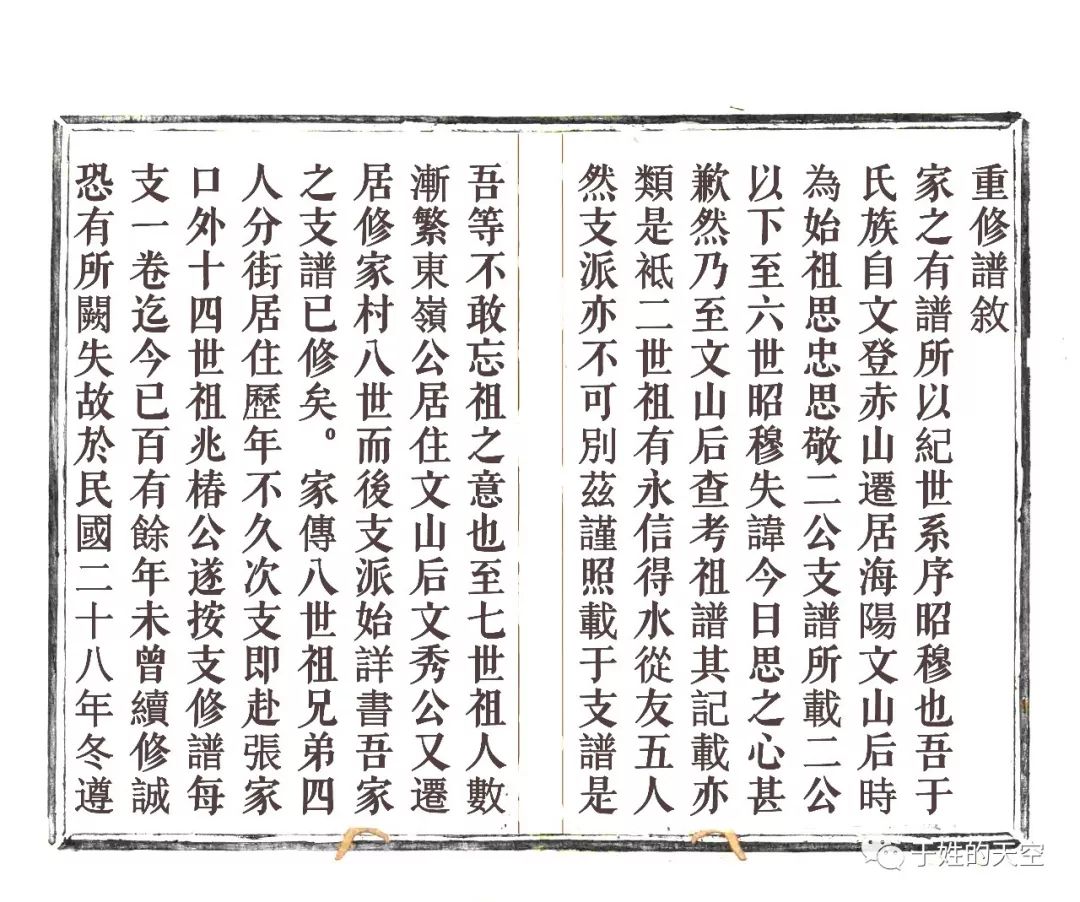 重修譜敘
家之有譜所以紀世系序昭穆也吾于
氏族自文登赤山遷居海陽文山后時
為始祖思忠思敬二公支譜所載二公
以下至六世昭穆失諱今日思之心甚
歉然乃至文山后查考祖譜其記載亦
類是祗二世祖有永信得水從友五人
然支派亦不可別茲謹照載于支譜是
吾等不敢忘祖之意也至七世祖人數
漸繁東嶺公居住文山后文秀公又遷
居修家村八世而後支派始詳書吾家
之支譜已修矣。家傳八世祖兄弟四
人分街居住歷年不久次支即赴張家
口外十四世祖兆椿公遂按支修譜每
支一卷迄今已百有餘年未曾續修誠
恐有所闕失故於民國二十八年冬遵
于姓的天空